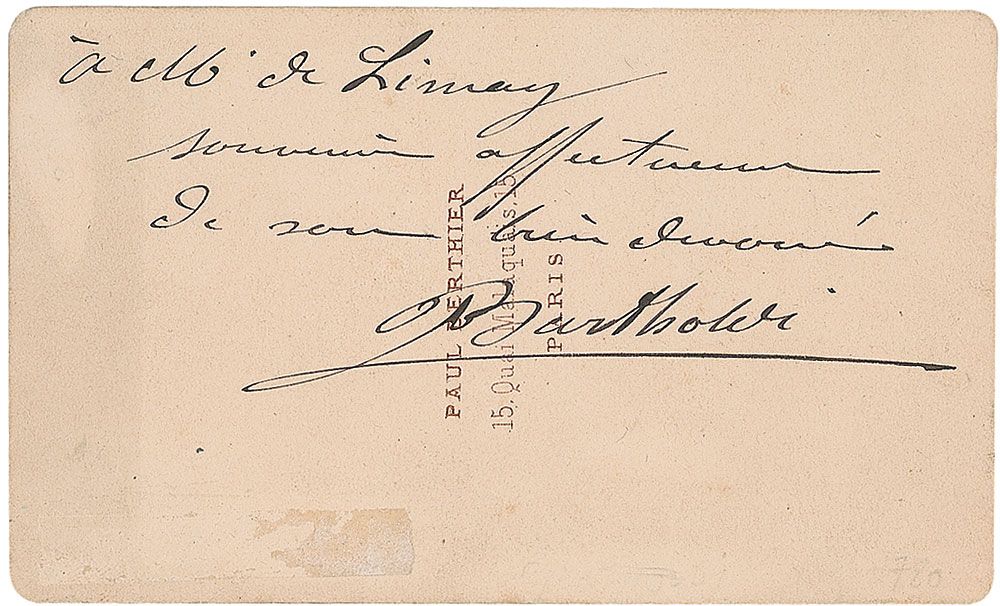 à Mr de Limay
souvenir affectueux
de son bien dévoué
Bartholdi
PAUL BERTHIER
15, Quai Malaquais, 15
PARIS
780